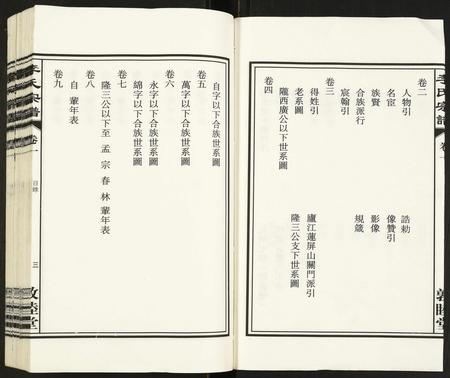 李氏宗譜
卷一
敦睦堂
卷二
人物引 誥勅
名宦 像贊引
族賢 影像
合族派行 規箴
宸翰引
卷三
得姓引 廬江蓮屏山關門派引
老系圖 隆三公支下世系圖
隴西廣公以下世系圖
卷四
自字以下合族世系圖
卷五
萬字以下合族世系圖
卷六
永字以下合族世系圖
綿字以下合族世系圖
卷七
隆三公以下至 孟 宗 春 林 輩年表
卷八
自 輩年表
卷九
李氏宗譜
卷一
目錄
三
敦睦堂